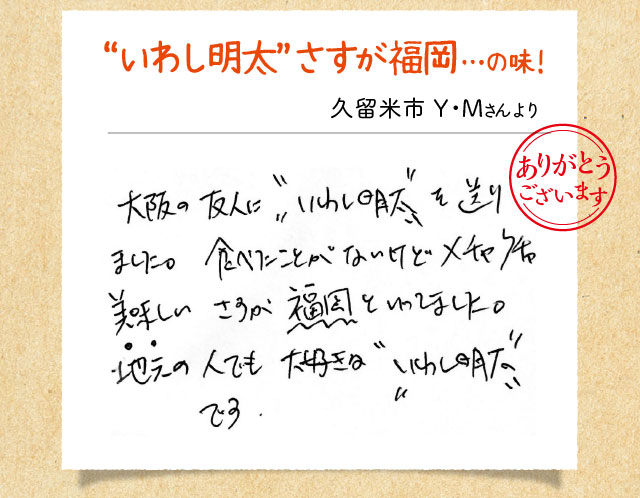 “いわし明太”さすが福岡…の味！
久留米市 Y・Mさんより
ありがとう
ございます
大阪の友人に〝いわし明太〟を送り
ました。食べたことがないけどメチャクチャ
美味しい さすが福岡といってました。
地元の人でも大好きな〝いわし明太〟
です.